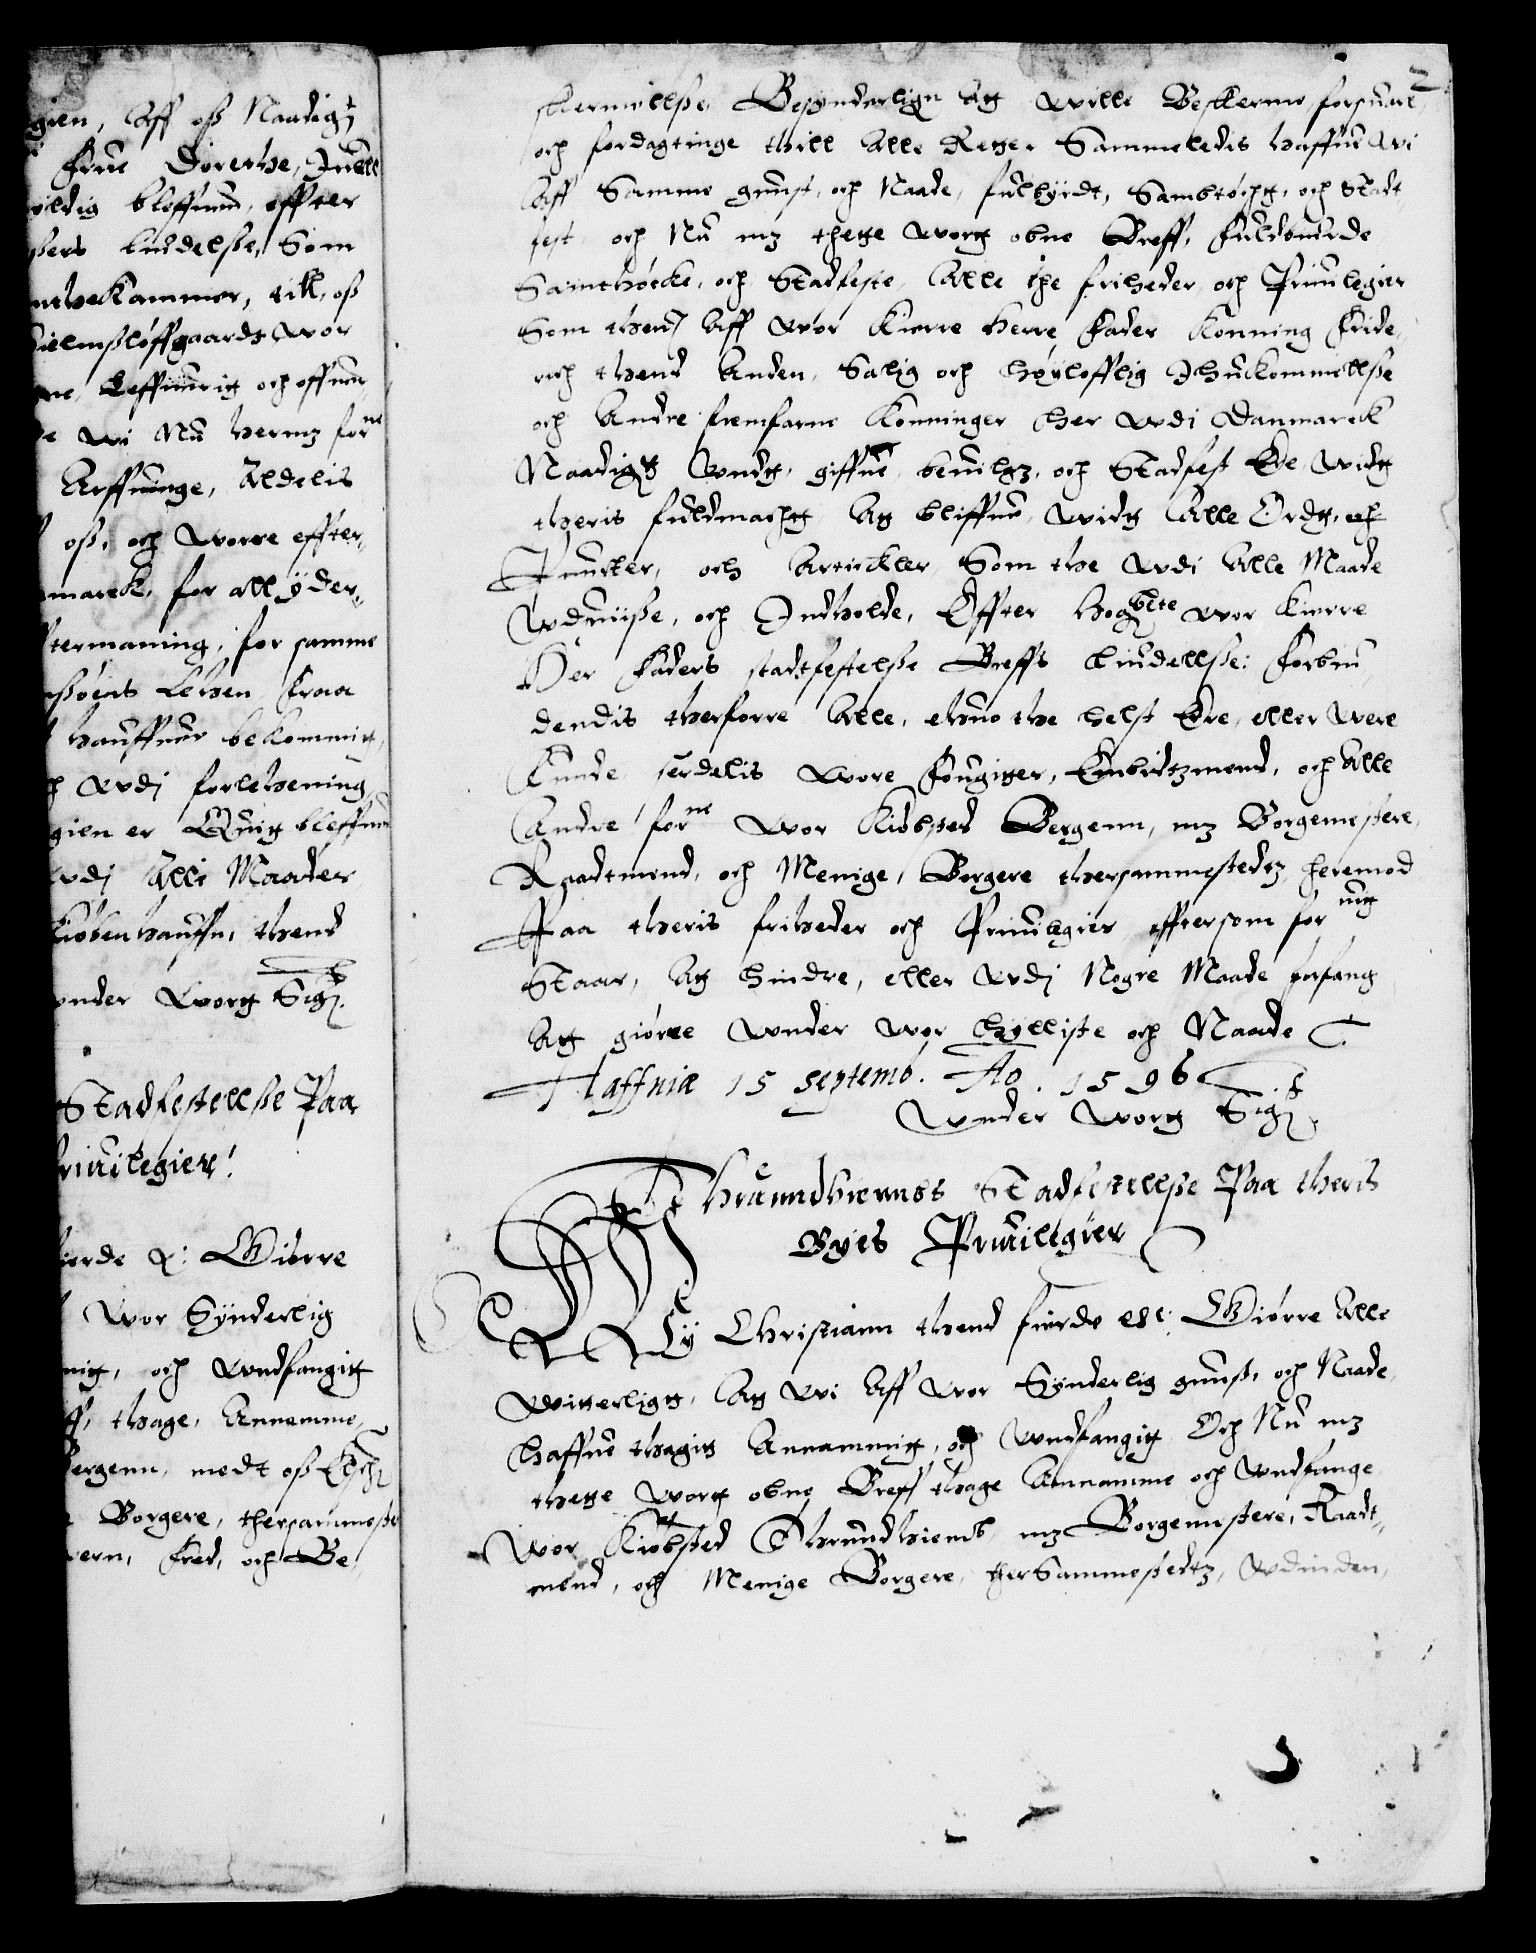 gien, Aff oß Naadigt
Frue Dorethe, Juell
yldig bleffuen, effter
ßers liudelße, Som
nthe Kammer, till, oß
ielmßløffgaardt wor
ne, leffuerig och offuer,
de wi Nu hermz forne
Arffuinge, Aldelis
oß, och worre effter,
marck, for all yder,
termaning, for samme
ßøens Lehen Fraa
haffuer bekommit,
h wdj forlehening,
gien er Quit bleffuen
wdj Alle Maader
Kiøbenhaffn, thend
vnder Wort Sig.
Stadfestellße Paa
riuilegier.
fierde &: Giørre
Wor Synderlig
mit, och wndfangit
ff, thage, Annemme,
Bergenn, medt oß Ech
Borgere, thersammeste
vern, Fred, och Be,
2
skermellße, Besynderlign At wille Beskerme, forsuare,
och fordagtinge thill Alle Retter Sammeledis haffue Wi
Aff Samme gunst, och Naade, fulbyrdt, Sambtøcht, och Stadt
fest, och Nu mz thette wort obne Breff, Fuldburde
Samthøcke, och Stadfeste, Alle the friheder, och Priuilegier
Som thend Aff wor Kierre Herre Fader Konning Fride,
rich thend Anden, Salig och høylofflig Ihukommellße
och Andre fremfarne Konninger her wdi Danmarck
Naadigt Wndt, giffuet beuilgt, och Stadfest Ere, Widt
theris fuldmacht At bliffue, widt Alle Ordt, och
Puncter, och Artickler, Som the wdi Alle Maade
Wduiiße, och Indholde, Effter Hogbete wor Kierre
Her Faders stadtfestelße Breffs liudellße: Forbiu,
dendis therforre Alle, ehuo the helst Ere, eller Were
Kunde, serdelis Wore Fougitter, Embidtzmend, och Alle
Andre forne Wor Kiøbsted Bergenn, mz Borgemestere,
Raadtmend, och Menige, Borgere thersammestedtz, heremod
Paa theris friheder och Priuilegier, efftersom for nit
Staar, At hindre, eller Wdj Nogre Maade forfang
At giøre Wnder Wor hylliste och Naade
Haffniæ 15 Septemb. Ao. 1596
Wnder Wort Sig.
Thruendhiembs Stadfestellße Paa theris
Byes Priuilegier
Wy Christiann thend fierde etc: Giørre Alle
Witterligt, At wi Aff wor Synderlig gunst, och Naade
haffue thagit Annammit, och Wndfangit Och Nu mz
thette wort obne Breff thage Annamme och Wndfange
Wor Kiøbsted Thrundhiemb, mz Borgemestere, Raadt,
mend, och Menige Borgere, ther Sammestedtz, Wdinden,